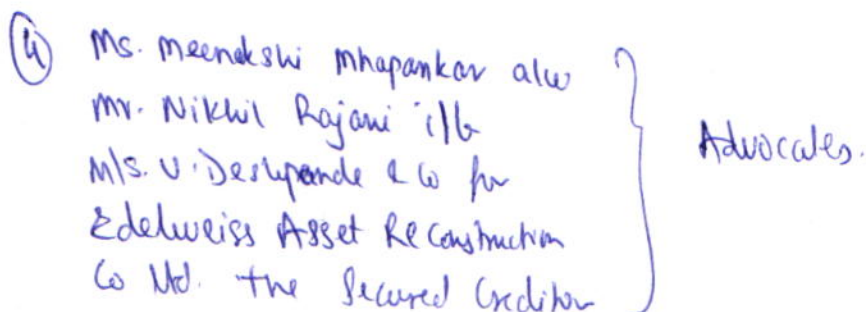 4 Ms. Meenakshi Mhapankar a/w
Mr. Nikhil Rajani i/b
M/s. V. Deshpande & Co for
Edelweiss Asset Reconstruction
Co Ltd. the Secured Creditor
Advocates.